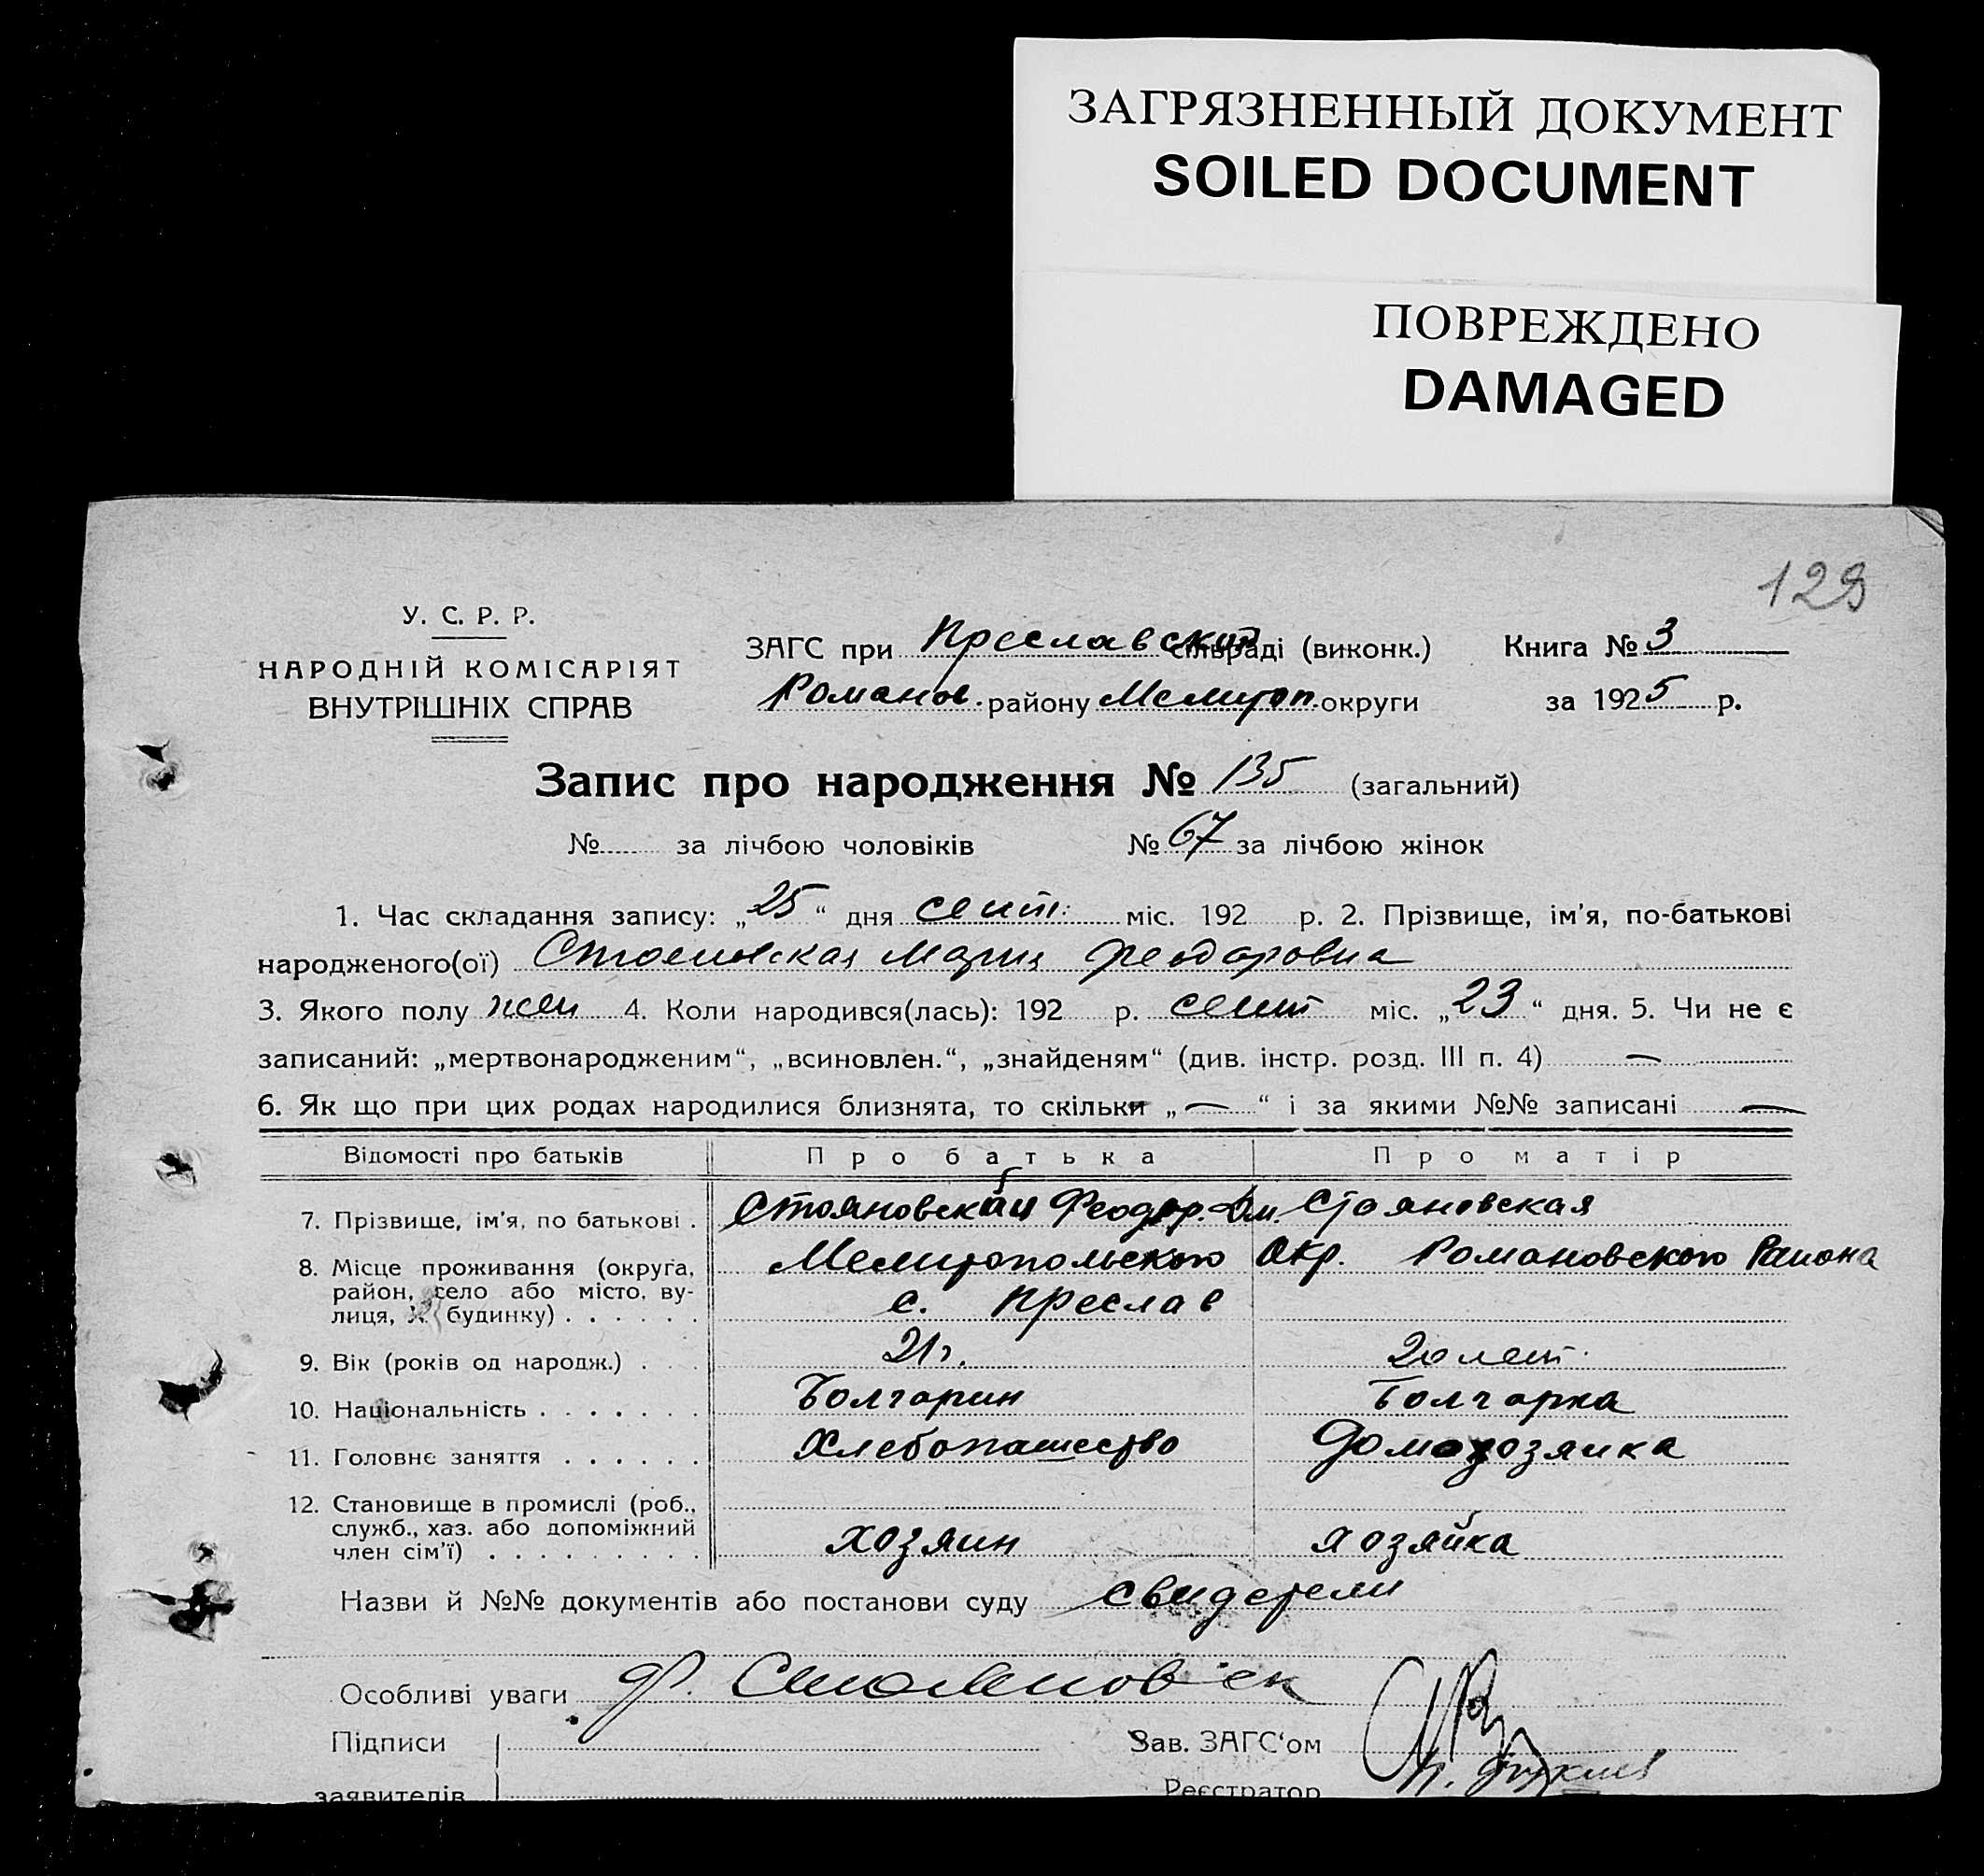 ЗАГРЯЗНЕННЫЙ ДОКУМЕНТ
SOILED DOCUMENT
ПОВРЕЖДЕНО
DAMAGED
129
У. С. Р. Р.
НАРОДНІЙ КОМІСАРІЯТ
ВНУТРІШНІХ СПРАВ
ЗАГС при Преславский сільраді (виконк.) Книга № 3
Романов. району Мелитоп. округи за 1925 р.
Запис про народження № 135 (загальний)
№ за лічбою чоловіків № 67 за лічбою жінок
1. Час складання запису: „25“ дня сент. міс. 192 р. 2. Прізвище, ім'я, по-батькові
народженого(ої) Стояновская Мария Феодоровна
3. Якого полу жен 4. Коли народився(лась): 192 р. сент міс. „23“ дня. 5. Чи не є
записаний: „мертвонародженим“, „всиновлен.“, „знайденям“ (див. інстр. розд. III п. 4) —
6. Як що при цих родах народилися близнята, то скільки „—“ і за якими №№ записані —
Відомості про батьків Про батька Про матір
7. Прізвище, ім'я, по батькові . Стояновский Феодор. Дм. Стояновская
8. Місце проживання (округа, Мелитопольского Окр. Романовского Района
район, село або місто, ву-
лиця, № будинку) . . . . . . с. Преслав
9. Вік (років од народж.) . . . 21 г. 20 лет.
10. Національність . . . . . . . Болгарин Болгарка
11. Головнє заняття . . . . . . Хлебопашество Домохозяйка
12. Становище в промислі (роб.,
служб., хаз. або допоміжний
член сім'ї) . . . . . . . . . хозяин хозяйка
Назви й №№ документів або постанови суду свидетели
Особливі уваги Ф. Стояновск
Підписи Зав. ЗАГС‘ом
заявителів Реєстратор